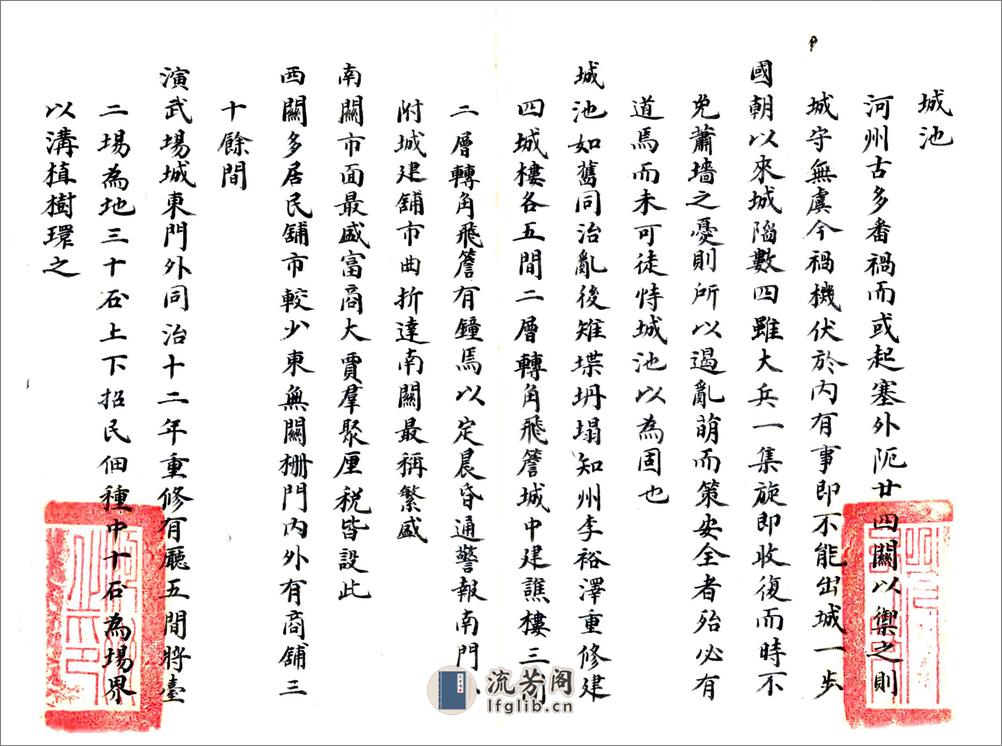 城池
河州古多番禍而或起塞外阨廿四關以禦之則
城守無虞今禍機伏於內有事即不能出城一步
國朝以來城陷數四雖大兵一集旋即收復而時不
免蕭墻之憂則所以遏亂萌而策安全者殆必有
道焉而未可徒恃城池以為固也
城池如舊同治亂後雉堞坍塌知州李裕澤重修建
四城樓各五間二層轉角飛簷城中建譙樓三間
二層轉角飛簷有鐘焉以定晨昏通警報南門
附城建舖市曲折達南關最稱繁盛
南關市面最盛富商大賈羣聚厘稅皆設此
西關多居民舖市較少東無關柵門內外有商舖三
十餘間
演武場城東門外同治十二年重修有廳五間將臺
二場為地三十石上下招民佃種中十石為場界
以溝植樹環之
流芳阁
lfglib.cn